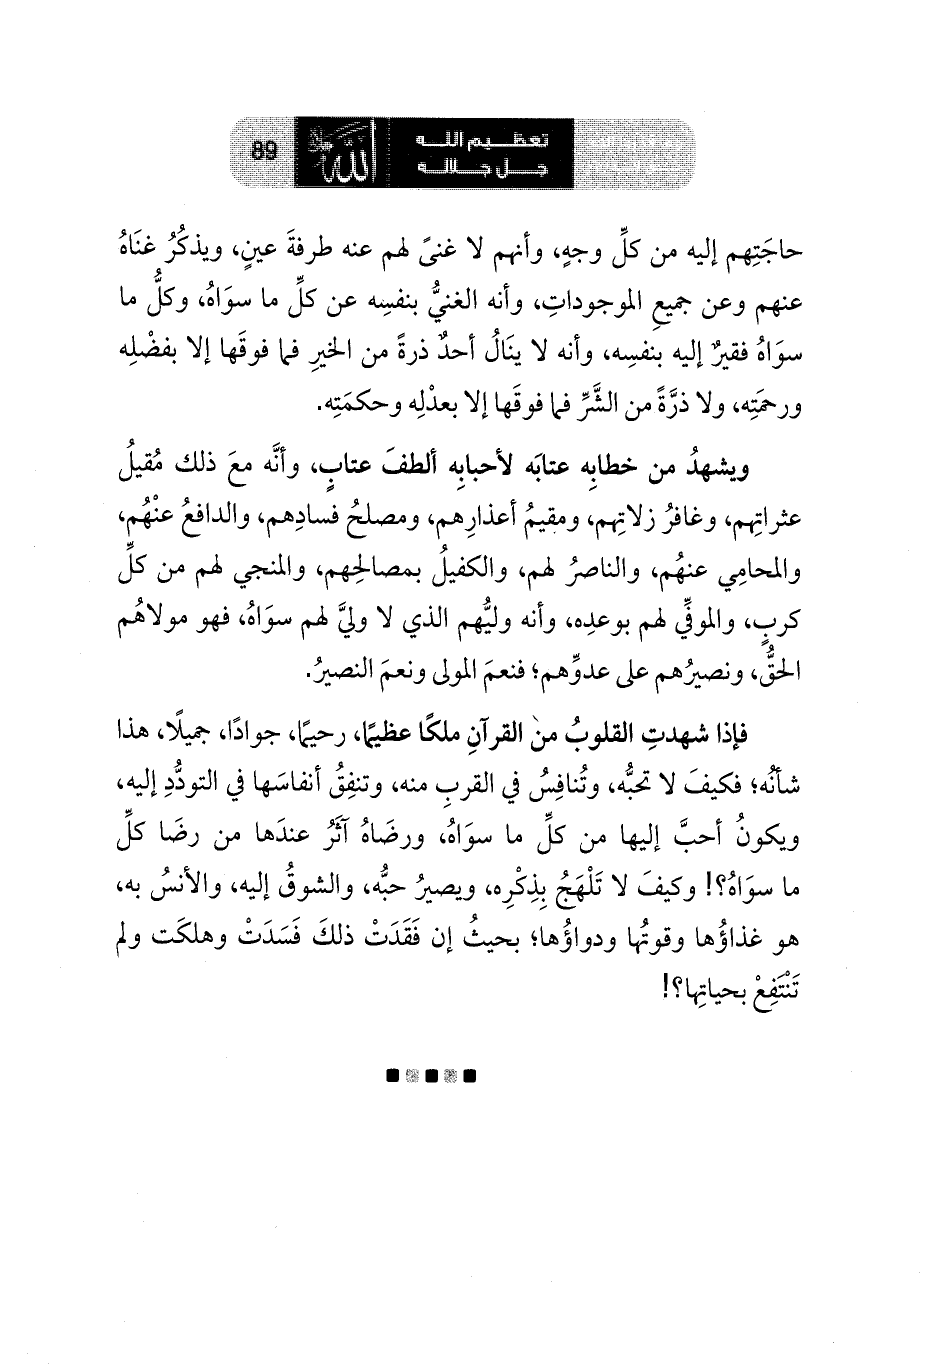 تعظيم الله
جل جلاله
الله
89
حاجَتِهم إليه من كلِّ وجهٍ، وأنهم لا غنىً لهم عنه طرفةَ عينٍ، ويذكُرُ غنَاهُ
عنهم وعن جميعِ الموجوداتِ، وأنه الغنيُّ بنفسِه عن كلِّ ما سوَاهُ، وكلُّ ما
سوَاهُ فقيرٌ إليه بنفسِه، وأنه لا ينَالُ أحدٌ ذرةً من الخيرِ فما فوقَها إلا بفضْلِه
ورحمَتِه، ولا ذرَّةً من الشَّرِّ فما فوقَها إلا بعدْلِه وحكمَتِه.
ويشهدُ من خطابِه عتابَه لأحبابِه ألطفَ عتابٍ، وأنَّه معَ ذلك مُقيلُ
عثراتِهم، وغافرُ زلاتِهم، ومقيمُ أعذارِهم، ومصلحُ فسادِهم، والدافعُ عنْهُم،
والمحامِي عنهُم، والناصرُ لهم، والكفيلُ بمصالحِهم، والمنجي لهم من كلِّ
كربٍ، والموفِّي لهم بوعدِه، وأنه وليُّهم الذي لا وليَّ لهم سوَاهُ، فهو مولاهُم
الحقُّ، ونصيرُهم على عدوِّهم؛ فنعمَ المولى ونعمَ النصيرُ.
فإذا شهدتِ القلوبُ منَ القرآنِ ملكًا عظيمًا، رحيمًا، جوادًا، جميلًا، هذا
شأنُه؛ فكيفَ لا تحبُّه، وتُنافِسُ في القربِ منه، وتنفِقُ أنفاسَها في التودُّدِ إليه،
ويكونُ أحبَّ إليها من كلِّ ما سوَاهُ، ورضَاهُ آثَرُ عندَها من رضَا كلِّ
ما سوَاهُ؟! وكيفَ لا تَلْهَجُ بِذِكْرِه، ويصيرُ حبُّه، والشوقُ إليه، والأنسُ به،
هو غذاؤُها وقوتُها ودواؤُها؛ بحيثُ إن فَقَدَتْ ذلكَ فَسَدَتْ وهلكَت ولم
تَنْتَفِعْ بحياتِها؟!